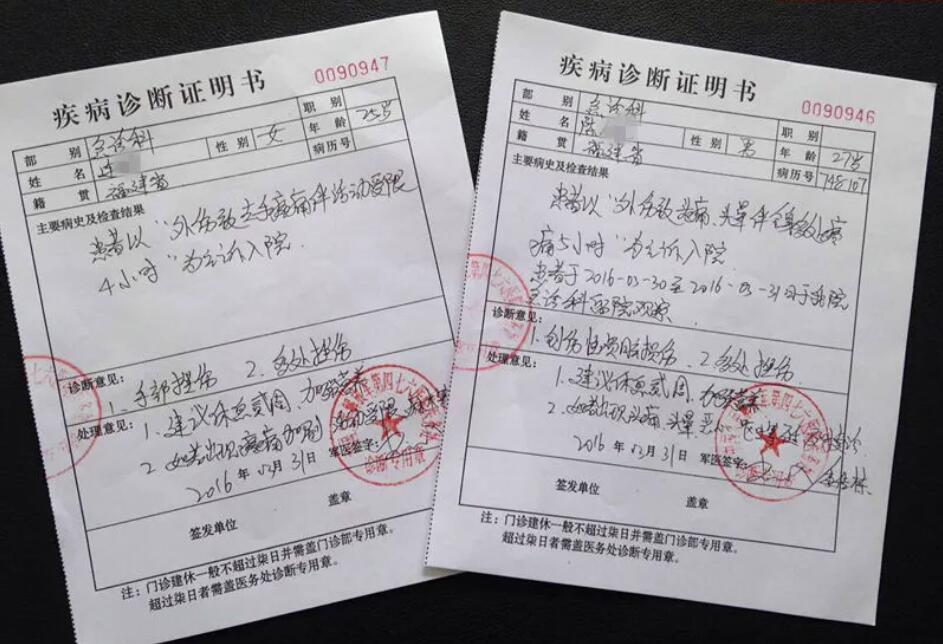 疾病诊断证明书
0090947
部别 急诊科 职别
姓名 性别 女 年龄 25岁
籍贯 福建省 病历号
主要病史及检查结果
患者以“外伤致左手疼痛伴活动受限
4小时”为主诉入院.
诊断意见:
1. 手部挫伤 2. 多处挫伤
处理意见:
1. 建议休息贰周、加强营养
2. 如若出现疼痛加剧 活动受限
2016年03月31日 军医签字:
签发单位 盖章
注:门诊建休一般不超过柒日并需盖门诊部专用章。
超过柒日者需盖医务处诊断专用章。
诊断专用章
疾病诊断证明书
0090946
部别 急诊科 职别
姓名 性别 男 年龄 27岁
籍贯 福建省 病历号 748107
主要病史及检查结果
患者以“外伤致头痛、头晕伴全身多处疼
痛5小时”为主诉入院
患者于2016-03-30至2016-03-31日于我院
急诊科留院观察.
诊断意见:
1. 2. 多处挫伤
处理意见:
1. 建议休息贰周、加强营养
2. 如若出现头痛、头晕、恶心
2016年03月31日 军医签字:
签发单位 盖章
注:门诊建休一般不超过柒日并需盖门诊部专用章。
超过柒日者需盖医务处诊断专用章。